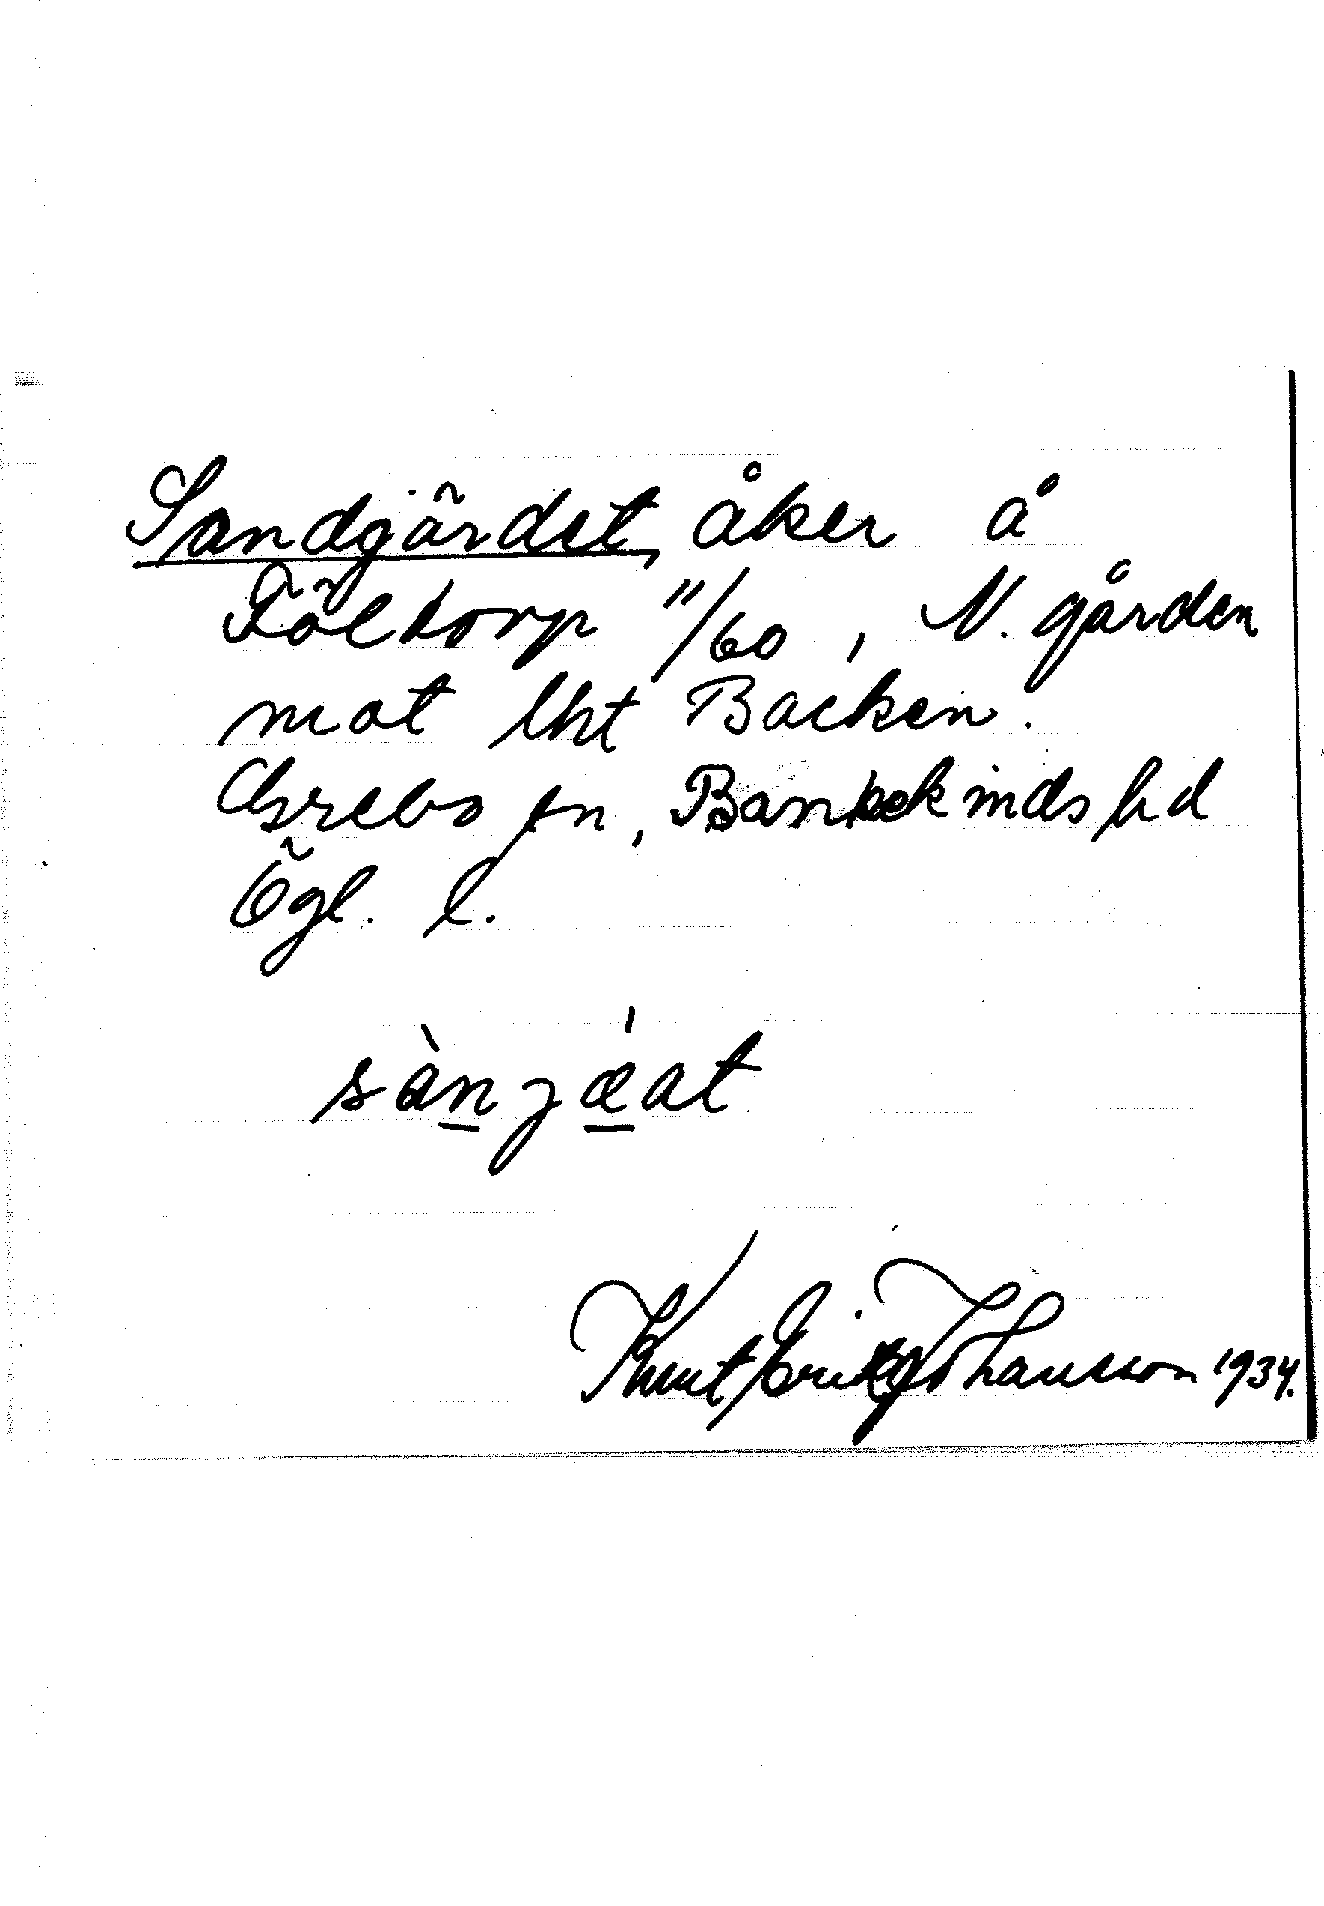 Sandgärdet, åker å
Föltorp "/60, N. gården
mot lht Backen.
Grebo sn, Bankekinds hd
Ögl. l.
sànjǽat
Knut Erik Johansson 1934.